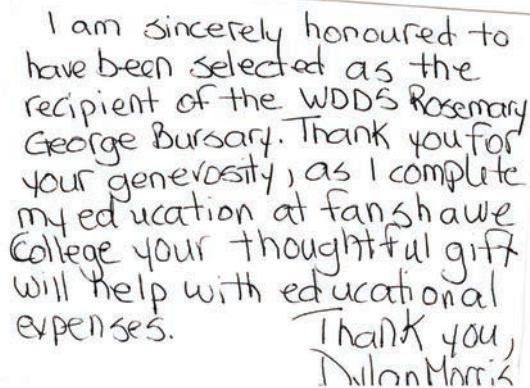 I am sincerely honoured to
have been selected as the
recipient of the WDDS Rosemary
George Bursary. Thank you for
your generosity, as I complete
my education at fanshawe
College your thoughtful gift
will help with educational
expenses. Thank you,
Dylan Morris